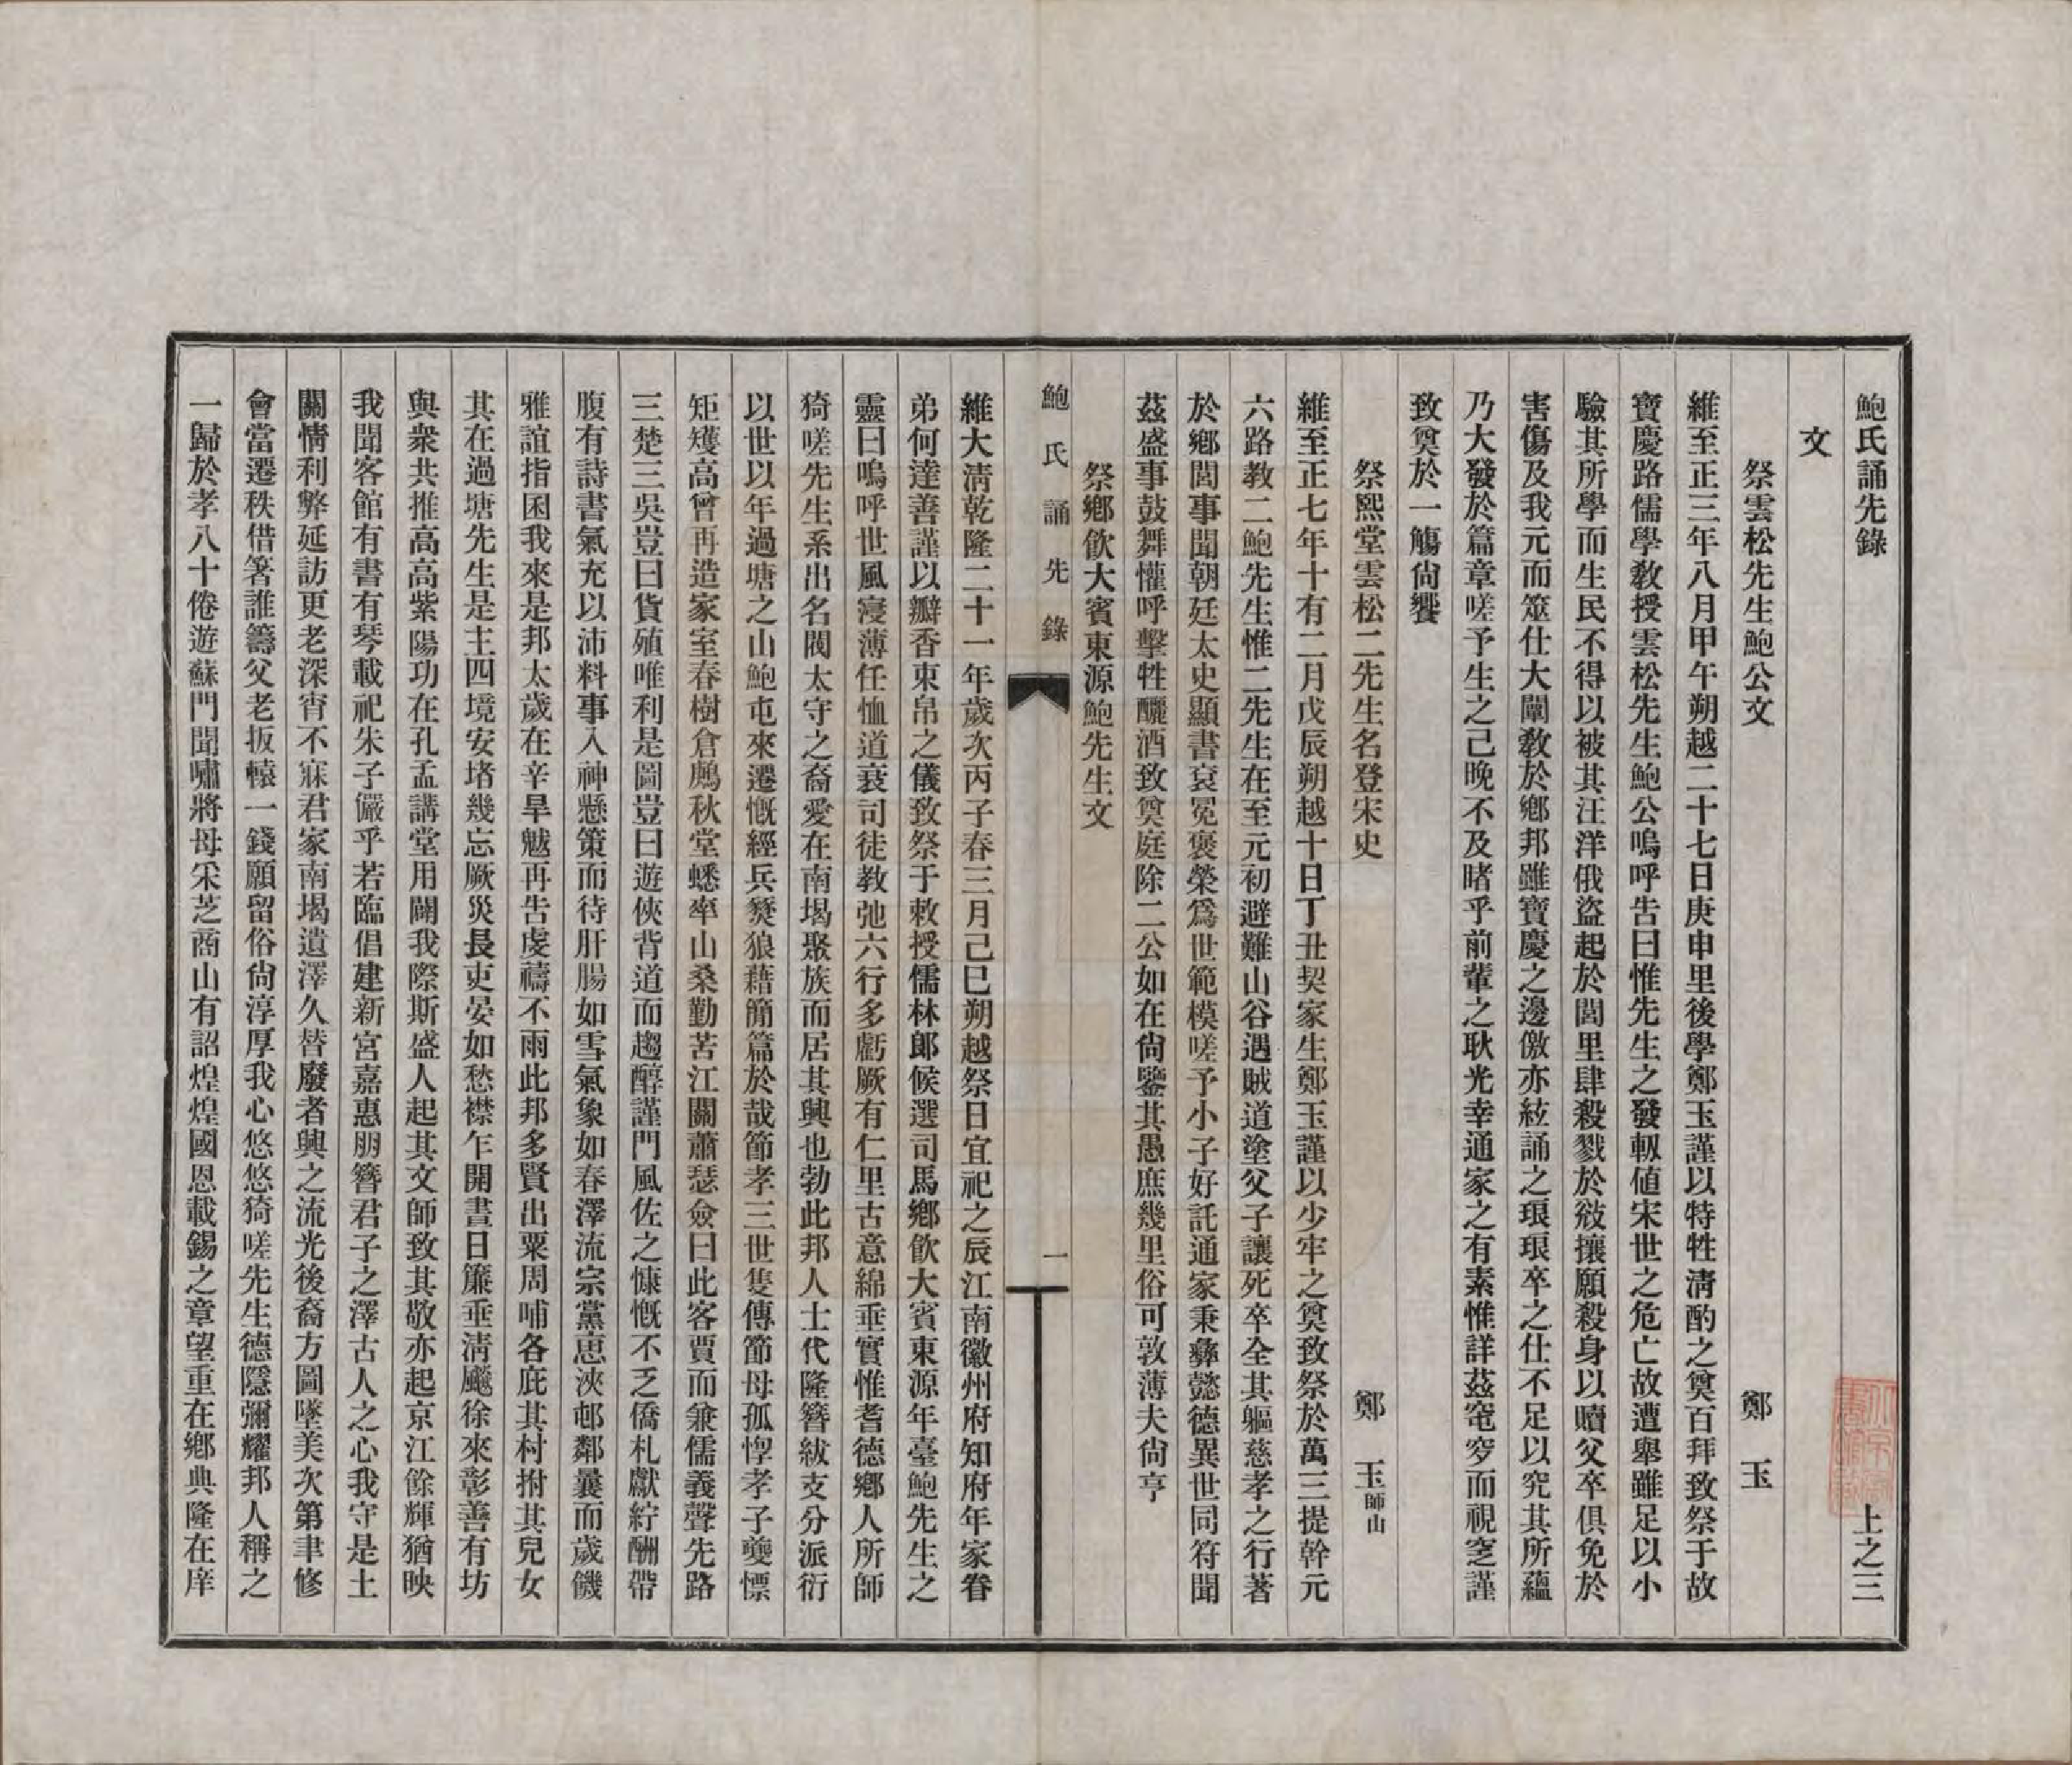 鮑氏誦先錄　上之三
文
祭雲松先生鮑公文　鄭　玉
維至正三年八月甲午朔越二十七日庚申里後學鄭玉謹以特牲淸酌之奠百拜致祭于故
寶慶路儒學敎授雲松先生鮑公嗚呼吿曰惟先生之發軔値宋世之危亡故遭舉雖足以小
驗其所學而生民不得以被其汪洋俄盜起於閭里肆殺戮於敓攘願殺身以贖父卒俱免於
害傷及我元而筮仕大闡敎於鄕邦雖寶慶之邊儌亦絃誦之琅琅卒之仕不足以究其所蘊
乃大發於篇章嗟予生之已晚不及睹乎前輩之耿光幸通家之有素惟詳茲窀穸而視窆謹
致奠於一觴尙饗
祭熙堂雲松二先生名登宋史　鄭　玉師山
維至正七年十有二月戊辰朔越十日丁丑契家生鄭玉謹以少牢之奠致祭於萬三提幹元
六路教二鮑先生惟二先生在至元初避難山谷遇賊道塗父子讓死卒全其軀慈孝之行著
於鄕閭事聞朝廷太史顯書袞冕褒榮爲世範模嗟予小子好託通家秉彝懿德異世同符聞
茲盛事鼓舞懽呼擊牲釃酒致奠庭除二公如在尙鑒其愚庶幾里俗可敦薄夫尙亨
祭鄕飮大賓東源鮑先生文
鮑氏誦先錄　一
維大淸乾隆二十一年歲次丙子春三月己巳朔越祭日宜祀之辰江南徽州府知府年家眷
弟何達善謹以瓣香束帛之儀致祭于敕授儒林郎候選司馬鄕飮大賓東源年臺鮑先生之
靈曰嗚呼世風寖薄任恤道衰司徒教弛六行多虧厥有仁里古意綿垂實惟耆德鄕人所師
猗嗟先生系出名閥太守之裔愛在南堨聚族而居其興也勃此邦人士代隆簪紱支分派衍
以世以年過塘之山鮑屯來遷慨經兵燹狼藉簡篇於哉節孝三世隻傳節母孤惸孝子夔慄
矩矱高曾再造家室春樹倉鷉秋堂蟋蟀山桑勤苦江關蕭瑟僉曰此客賈而兼儒義聲先路
三楚三吳豈曰貨殖唯利是圖豈曰遊俠背道而趨醇謹門風佐之慷慨不乏僑札獻紵酬帶
腹有詩書氣充以沛料事入神懸策而待肝腸如雪氣象如春澤流宗黨恵浹邨鄰曩而歲饑
雅誼指囷我來是邦太歲在辛旱魃再吿虔禱不雨此邦多賢出粟周哺各庇其村拊其兒女
其在過塘先生是主四境安堵幾忘厥災長吏晏如愁襟乍開晝日簾垂淸飈徐來彰善有坊
與衆共推高高紫陽功在孔孟講堂用闢我際斯盛人起其文師致其敬亦起京江餘輝猶映
我聞客館有書有琴載祀朱子儼乎若臨倡建新宮嘉惠朋簪君子之澤古人之心我守是土
關情利弊延訪更老深宵不寐君家南堨遺澤久替廢者興之流光後裔方圖墜美次第聿修
會當遷秩借箸誰籌父老扳轅一錢願留俗尙淳厚我心悠悠猗嗟先生德隱彌耀邦人稱之
一歸於孝八十倦遊蘇門聞嘯將毋采芝商山有詔煌煌國恩載錫之章望重在鄕典隆在庠